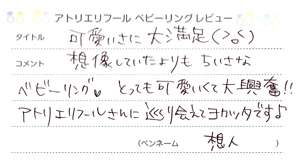 アトリエリフール ベビーリング レビュー
タイトル 可愛いさに大満足(^o^)
コメント 想像していたよりもちいさな
ベビーリング♥とっても可愛いくて大興奮!!
アトリエリフールさんに巡り会えてヨカッタですよ
(ペンネーム 想人 )